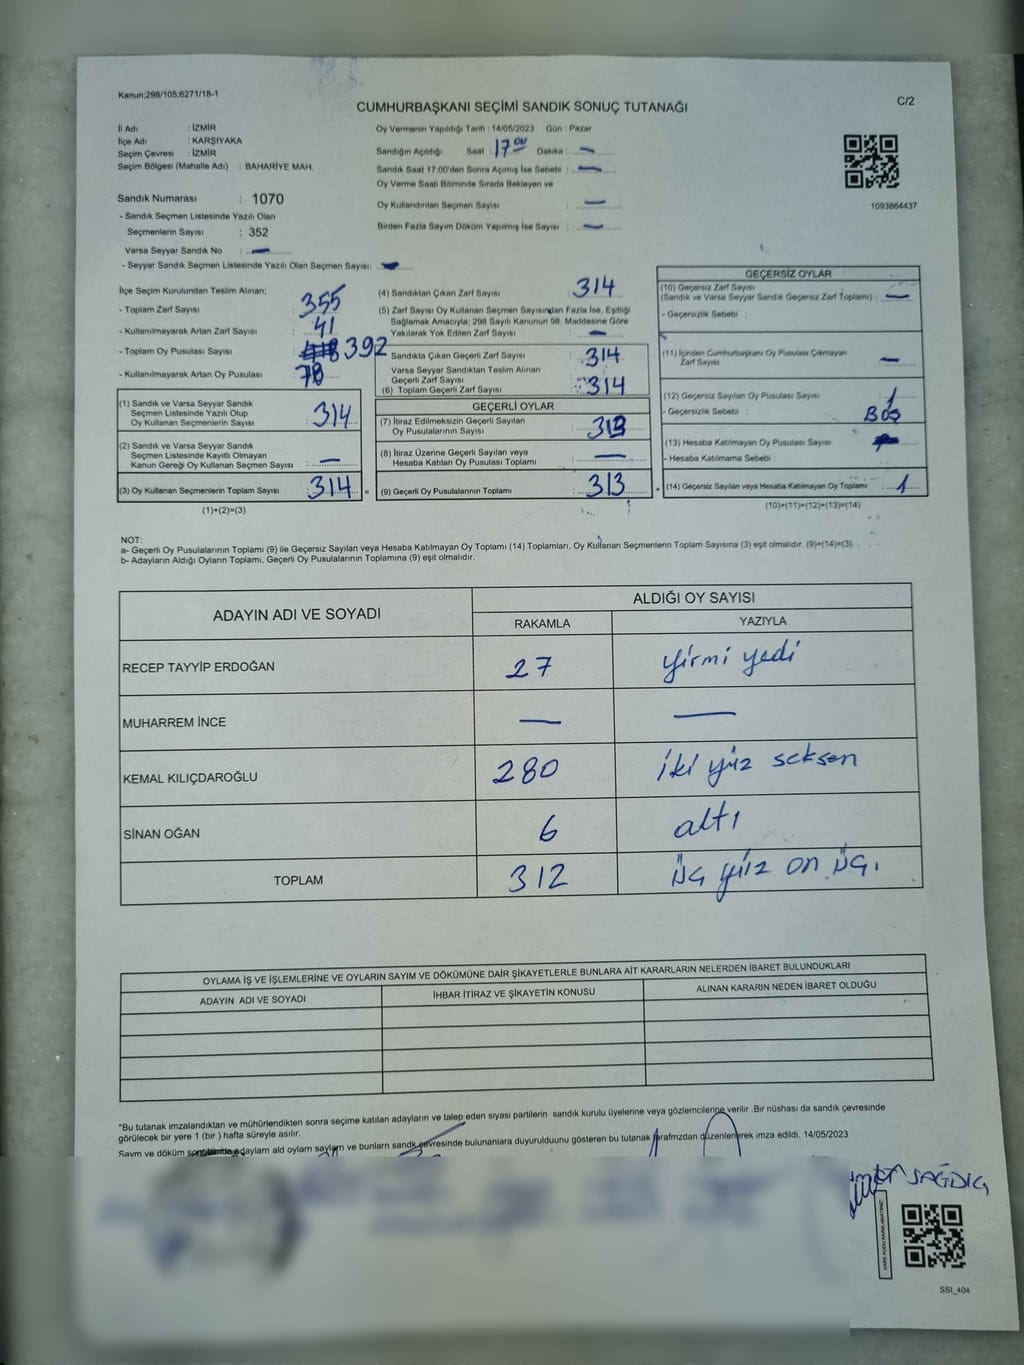 Kanun:298/105;6271/18-1
CUMHURBAŞKANI SEÇİMİ SANDIK SONUÇ TUTANAĞI
C/2
İl Adı : İZMİR
İlçe Adı : KARŞIYAKA
Seçim Çevresi : İZMİR
Seçim Bölgesi (Mahalle Adı) : BAHARİYE MAH.
Sandık Numarası : 1070
- Sandık Seçmen Listesinde Yazılı Olan
Seçmenlerin Sayısı : 352
Varsa Seyyar Sandık No : —
- Seyyar Sandık Seçmen Listesinde Yazılı Olan Seçmen Sayısı: —
Oy Vermenin Yapıldığı Tarih : 14/05/2023 Gün : Pazar
Sandığın Açıldığı Saat : 17 00 Dakika : —
Sandık Saat 17:00'den Sonra Açımış İse Sebebi : —
Oy Verme Saati Bitiminde Sırada Bekleyen ve
Oy Kullandırılan Seçmen Sayısı : —
Birden Fazla Sayım Döküm Yapılmış İse Sayısı : —
1093864437
İlçe Seçim Kurulundan Teslim Alınan;
- Toplam Zarf Sayısı : 355
- Kullanılmayarak Artan Zarf Sayısı : 41
- Toplam Oy Pusulası Sayısı : 392
- Kullanılmayarak Artan Oy Pusulası : 78
(1) Sandık ve Varsa Seyyar Sandık
Seçmen Listesinde Yazılı Olup
Oy Kullanan Seçmenlerin Sayısı : 314
(2) Sandık ve Varsa Seyyar Sandık
Seçmen Listesinde Kayıtlı Olmayan
Kanun Gereği Oy Kullanan Seçmen Sayısı : —
(3) Oy Kullanan Seçmenlerin Toplam Sayısı : 314
(1)+(2)=(3)
(4) Sandıktan Çıkan Zarf Sayısı 314
(5) Zarf Sayısı Oy Kullanan Seçmen Sayısından Fazla İse, Eşitliği
Sağlamak Amacıyla; 298 Sayılı Kanunun 98. Maddesine Göre
Yakılarak Yok Edilen Zarf Sayısı : —
Sandıkta Çıkan Geçerli Zarf Sayısı : 314
Varsa Seyyar Sandıktan Teslim Alınan
Geçerli Zarf Sayısı
(6) Toplam Geçerli Zarf Sayısı : 314
GEÇERLİ OYLAR
(7) İtiraz Edilmeksizin Geçerli Sayılan
Oy Pusulalarının Sayısı : 313
(8) İtiraz Üzerine Geçerli Sayılan veya
Hesaba Katılan Oy Pusulası Toplamı : —
(9) Geçerli Oy Pusulalarının Toplamı : 313
GEÇERSİZ OYLAR
(10) Geçersiz Zarf Sayısı
(Sandık ve Varsa Seyyar Sandık Geçersiz Zarf Toplamı) : —
- Geçersizlik Sebebi :
(11) İçinden Cumhurbaşkanı Oy Pusulası Çıkmayan
Zarf Sayısı —
(12) Geçersiz Sayılan Oy Pusulası Sayısı : 1
- Geçersizlik Sebebi : Boş
(13) Hesaba Katılmayan Oy Pusulası Sayısı
- Hesaba Katılmama Sebebi :
(14) Geçersiz Sayılan veya Hesaba Katılmayan Oy Toplamı : 1
(10)+(11)+(12)+(13)=(14)
NOT:
a- Geçerli Oy Pusulalarının Toplamı (9) ile Geçersiz Sayılan veya Hesaba Katılmayan Oy Toplamı (14) Toplamları, Oy Kullanan Seçmenlerin Toplam Sayısına (3) eşit olmalıdır. (9)+(14)=(3)
b- Adayların Aldığı Oyların Toplamı, Geçerli Oy Pusulalarının Toplamına (9) eşit olmalıdır.
ADAYIN ADI VE SOYADI
ALDIĞI OY SAYISI
RAKAMLA YAZIYLA
RECEP TAYYİP ERDOĞAN 27 yirmi yedi
MUHARREM İNCE — —
KEMAL KILIÇDAROĞLU 280 iki yüz seksen
SİNAN OĞAN 6 altı
TOPLAM 312 üç yüz on üç.
OYLAMA İŞ VE İŞLEMLERİNE VE OYLARIN SAYIM VE DÖKÜMÜNE DAİR ŞİKAYETLERLE BUNLARA AİT KARARLARIN NELERDEN İBARET BULUNDUKLARI
ADAYIN ADI VE SOYADI İHBAR İTİRAZ VE ŞİKAYETİN KONUSU ALINAN KARARIN NEDEN İBARET OLDUĞU
*Bu tutanak imzalandıktan ve mühürlendikten sonra seçime katılan adayların ve talep eden siyasi partilerin sandık kurulu üyelerine veya gözlemcilerine verilir .Bir nüshası da sandık çevresinde
görülecek bir yere 1 (bir ) hafta süreyle asılır.
Sayım ve döküm adayların ald oyların sayların ve bunların sandk çevresinde bulunanlara duyurulduunu gösteren bu tutanak tarafmzdan düzenlenerek imza edildi. 14/05/2023
SAĞDIÇ
SSI_404